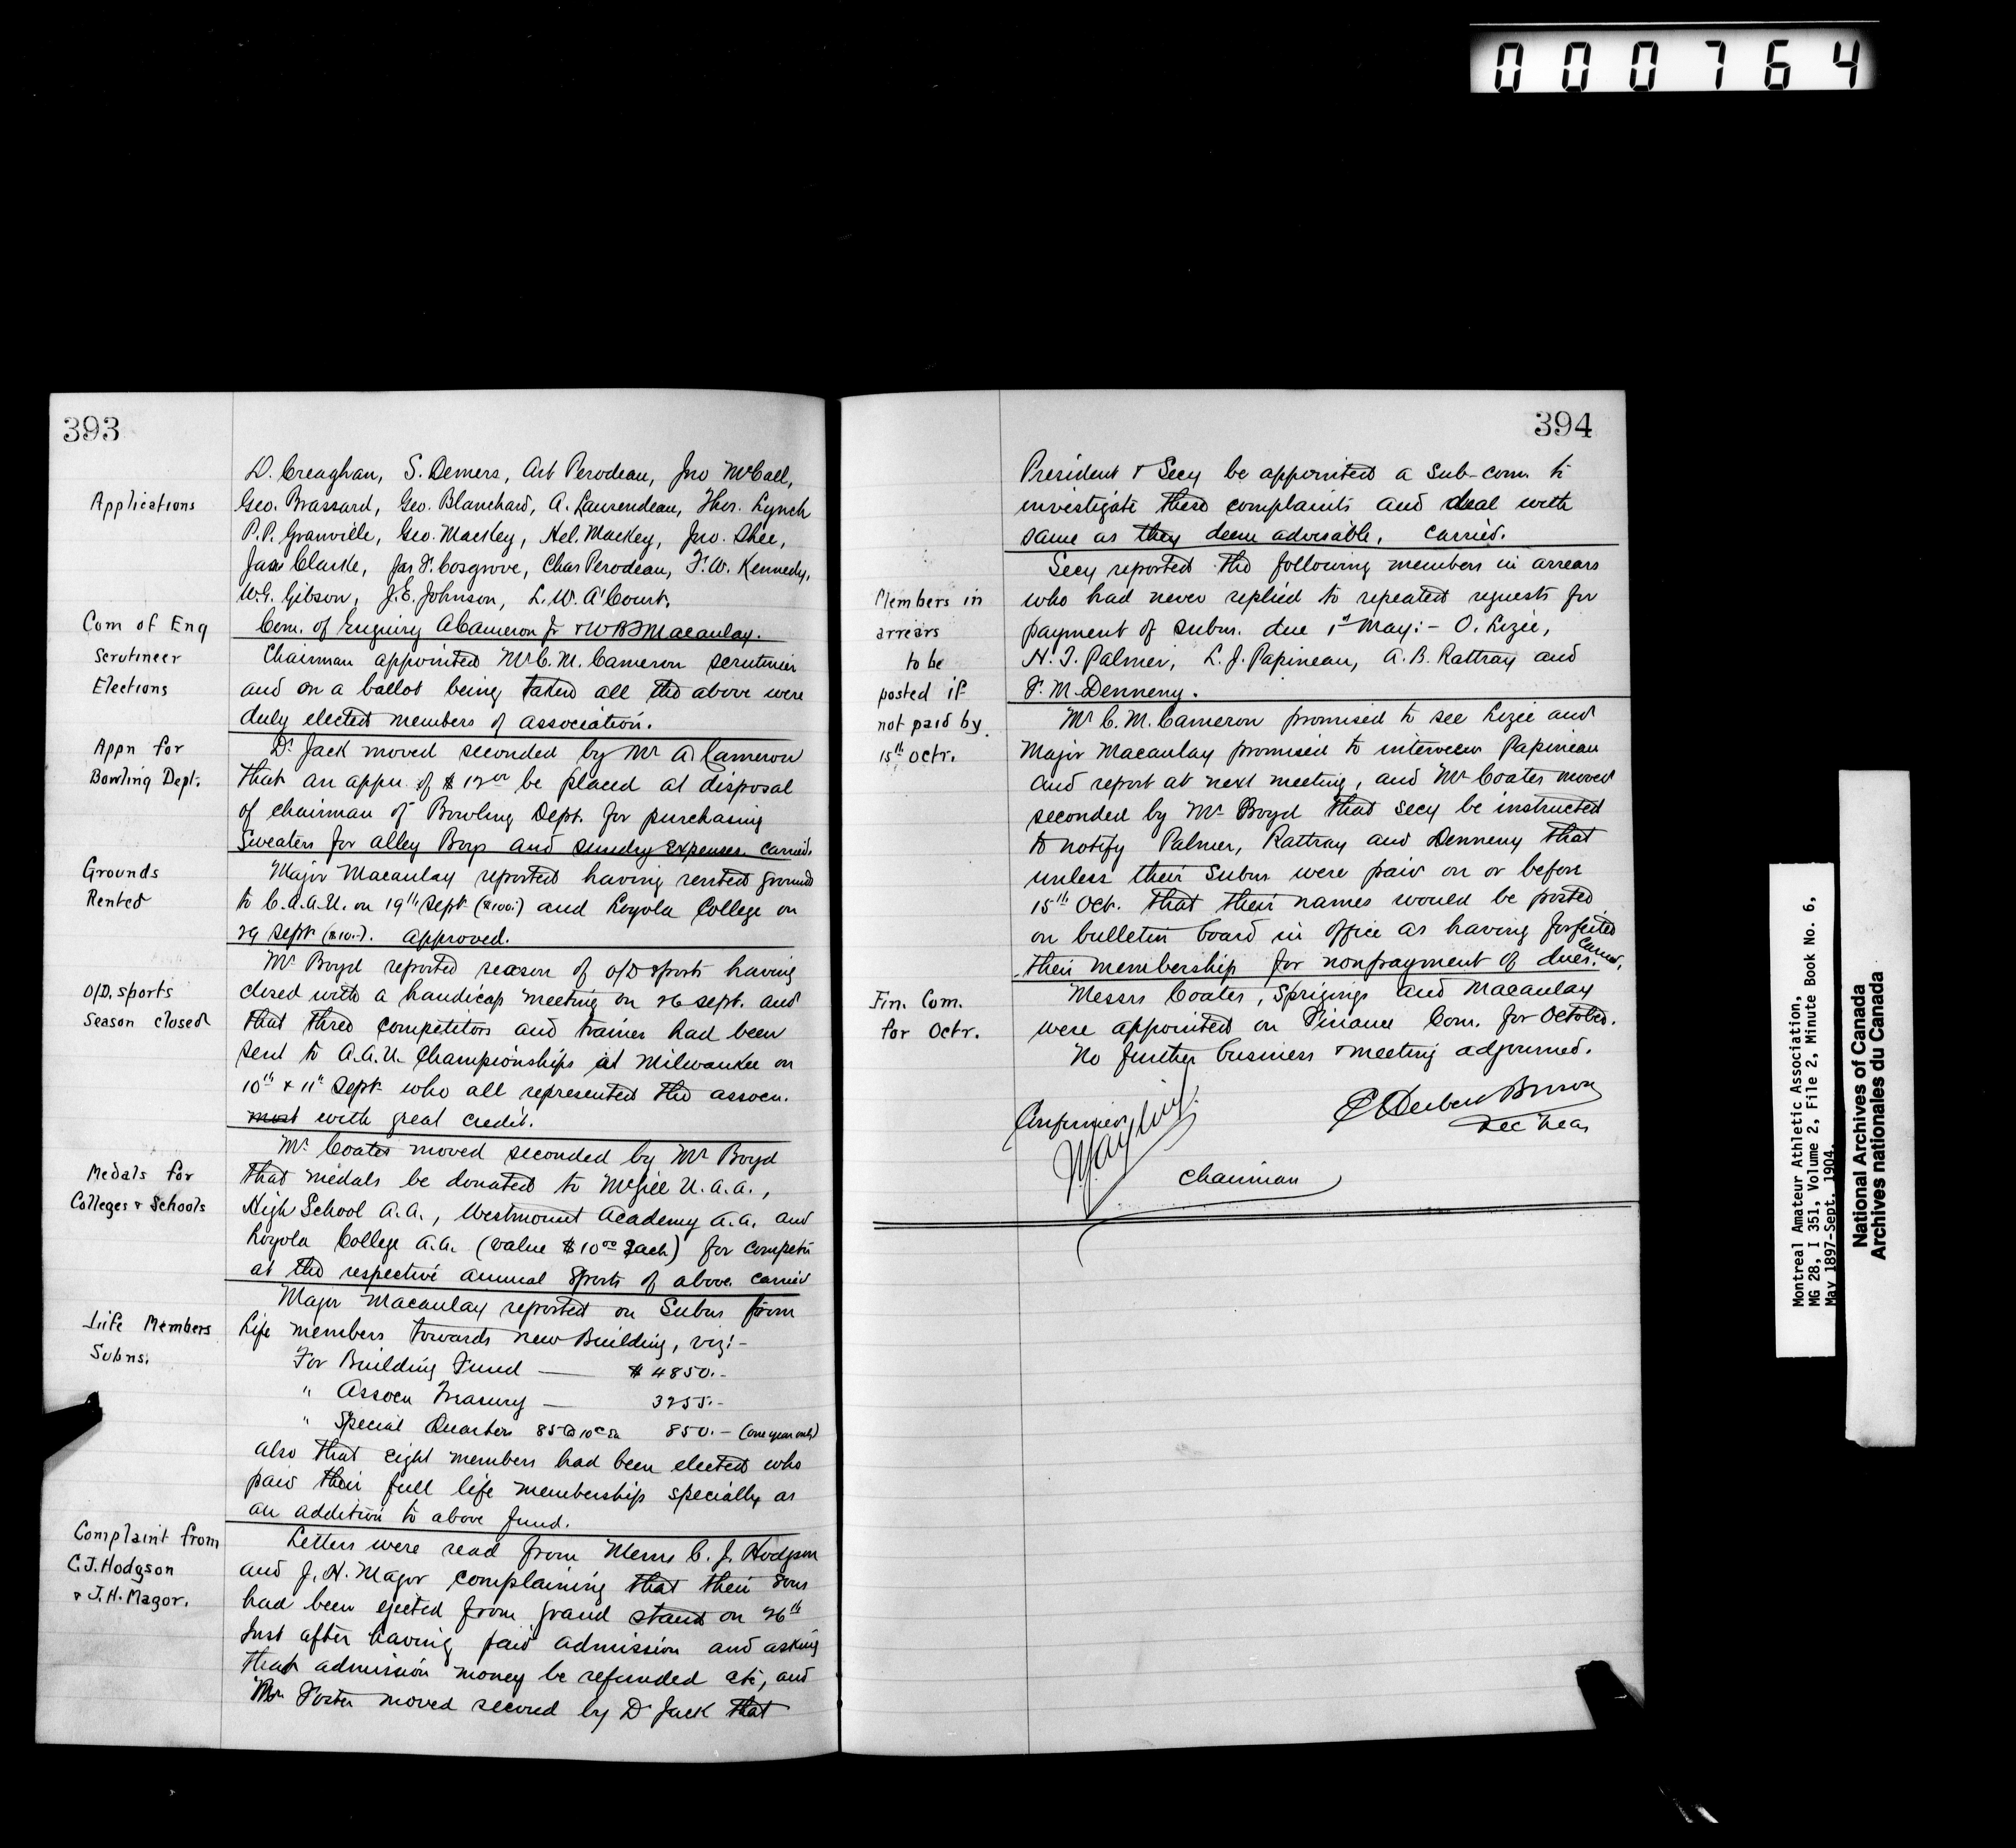 000764
393
Applications
D. Creaghan, S. Demers, Art Perodeau, Jno McCall,
Geo. Brassard, Geo. Blanchard, A. Laurendeau, Thos. Lynch
P.P. Granville, Geo. Mackey, Hel. Mackey, Jno. Shee,
Jas Clarke, Jas F. Cosgrove, Chas Perodeau, F.W. Kennedy,
W.G. Gibson, J.E. Johnson, L.W. A'Court.
Com of Enq
Com. of Enquiry A Cameron Jr & W B T Macaulay.
Scrutineer
Elections
Chairman appointed Mr C. M. Cameron scrutineer
and on a ballot being taken all the above were
duly elected members of association.
Appn for
Bowling Dept.
Dr Jack moved seconded by Mr A. Cameron
that an appn. of $12 00 be placed at disposal
of chairman of Bowling Dept. for purchasing
Sweaters for alley Boys and sundry expenses. carried.
Grounds
Rented
Major Macaulay reported having rented grounds
to C.A.A.U. on 19th Sept ($100.-) and Loyola College on
29 Sept ($10.-). approved.
O/D. sports
Season closed
Mr Boyd reported season of O/D sports having
closed with a handicap meeting on 26 sept. and
that three competitors and trainer had been
sent to A.A.U. Championships at Milwaukee on
10th & 11th Sept. who all represented the assocn.
most with great credit.
Medals for
Colleges & Schools
Mr. Coates moved seconded by Mr Boyd
that medals be donated to McGill U.A.A.,
High School A.A., Westmount Academy A.A. and
Loyola College A.A. (value $10 00 each) for compet'n
at the respective annual Sports of above. carried
Life Members
Subns.
Major Macaulay reported on Subns from
Life members towards new Building, viz:-
For Building Fund — $4850.-
" Assocn Treasury — 3255.-
" Special Quarters 85 @ 10 ea 850.- (one year only)
also that eight members had been elected who
paid their full life membership specially as
an addition to above fund.
Complaint from
C.J. Hodgson
& J.H. Magor.
Letters were read from Messrs C. J. Hodgson
and J. H. Magor complaining that their sons
had been ejected from grand stand on 26th
Inst after having paid admission and asking
that admission money be refunded etc, and
Mr Foster moved second by Dr Jack that
394
President & Secy be appointed a Sub-com. to
investigate these complaints and deal with
same as they deem advisable. carried.
Members in
arrears
to be
posted if
not paid by
15th Octr.
Secy reported the following members in arrears
who had never replied to repeated requests for
payment of subns. due 1st May:- O. Lizie,
H. T. Palmer, L. J. Papineau, A. B. Rattray and
F. M. Denneny.
Mr C. M. Cameron promised to see Lizie and
Major Macaulay promised to interview Papineau
and report at next meeting, and Mr Coates moved
seconded by Mr Boyd that Secy be instructed
to notify Palmer, Rattray and Denneny that
unless their Subns were paid on or before
15th Oct. that their names would be posted
on bulletin board in office as having forfeited
their membership for nonpayment of dues. Carried.
Fin. Com.
for Octr.
Messrs Coates, Sprigings and Macaulay
were appointed on Finance Com. for October.
No further business & meeting adjourned.
Confirmed
Herbert Brown
Sec Treas
Chairman
Montreal Amateur Athletic Association,
MG 28, I 351, Volume 2, File 2, Minute Book No. 6,
May 1897-Sept. 1904.
National Archives of Canada
Archives nationales du Canada